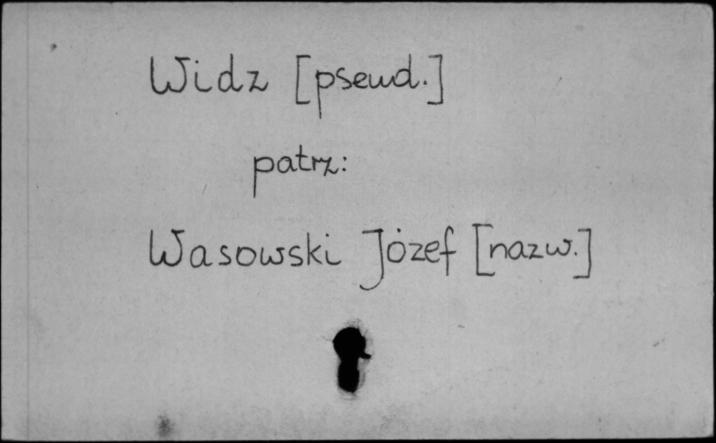 Widz [pseud.]
patrz:
Wasowski Józef [nazw.]